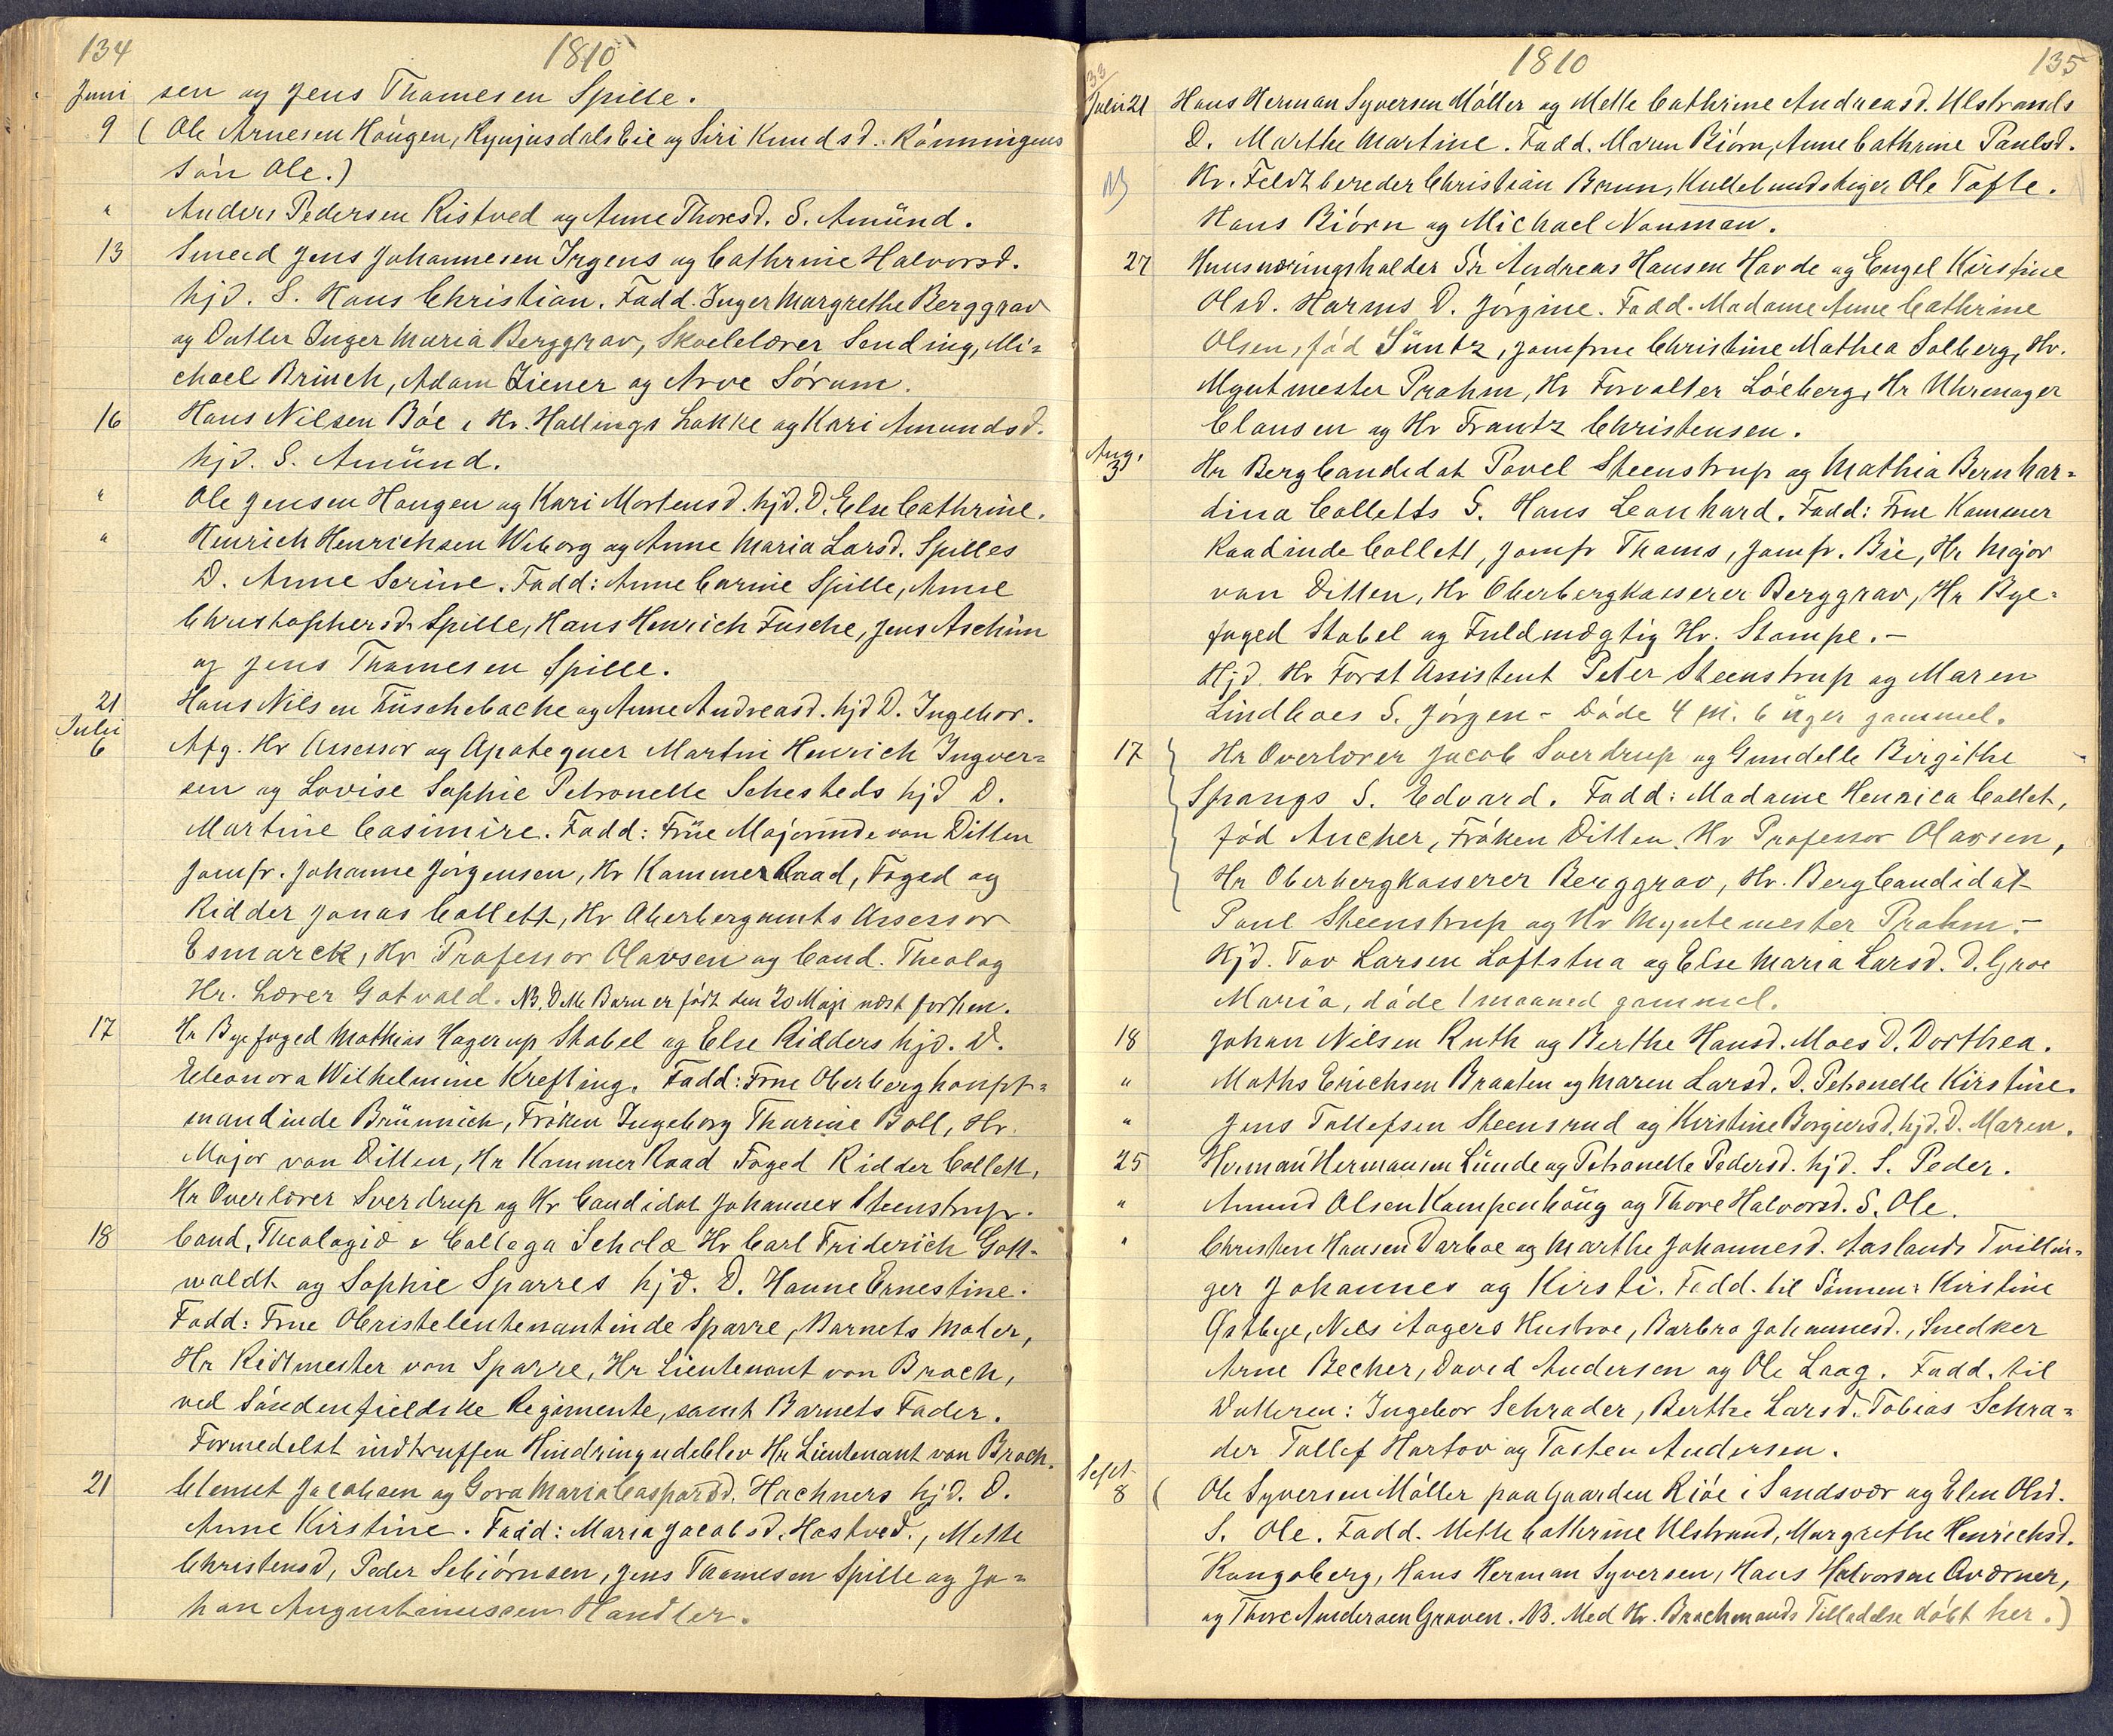 134
1810
Juni sen og Jens Thamesen Spille.
9 ( Ole Arnesen Hougen, Rynjusdals Eie og Siri Knudsd. Rönningens
Sön Ole.)
" Anders Pedersen Ristved og Anne Thoresd. S. Amünd.
13 Smed Jens Johannesen Irgens og Cathrine Halvorsd.
hjd. S. Hans Christian. Fadd. Inger Margrethe Berggrav
og Datter Inger Maria Berggrav, Skoelelærer Sending, Mi=
chael Brinch, Adam Ziener og Arve Sörum.
16 Hans Nilsen Böe i Hr. Hallings Løkke og Kari Amundsd.
hjd. S. Amünd.
" Ole Jensen Hougen og Kari Mortensd. hjd. D. Else Cathrine.
" Henrich Henrichsen Wiborg og Anne Maria Larsd. Spilles
D. Anne Serine. Fadd: Anne Carine Spille, Anne
Christophersd. Spille, Hans Henrich Fusche, Jens Aschim
og Jens Thamesen Spille.
21 Hans Nilsen Tüschebache og Anne Andreasd. hjd D. Ingebor.
Julii
6 Afg. Hr Assessor og Apotequer Martin Henrich Ingver=
sen og Lovise Sophie Petronelle Schesteds hjd D.
Martine Casimire. Fadd: Früe Majorinde von Ditten
Jomfr. Johanne Jörgensen, Hr KammerRaad, Foged og
Ridder Jonas Collett, Hr Oberbergamts Assessor
Esmarck, Hr Professor Olavsen og Cand. Theolog
Hr. Lærer Gotvald. NB. Dette Barn er født den 20 Maji næst forhen.
17 Hr Byefoged Mathias Hagerup Stabel og Else Ridders hjd. D.
Eleonora Wilhelmine Krefting. Fadd: Frue Oberberghaupt=
mandinde Brünnich, Fröken Ingeborg Thurine Boll, Hr.
Major von Ditten, Hr KammerRaad Foged Ridder Collett,
Hr Overlærer Sverdrup og Hr Candidat Johannes Steenstrup.
18 Cand. Theologiæ & Collega Scholæ Hr Carl Friderich Gott-
waldt og Sophie Sparres hjd. D. Hanne Ernestine.
Fadd: Frue Obristeleutenantinde Sparre, Barnets Moder,
Hr Ridtmester von Sparre, Hr Lieutenant von Broch,
ved Söndenfieldske Regimente, samt Barnets Fader.
Formedelst indtruffen Hindring udeblev Hr Lieutenant von Broch.
21 Clemet Jacobsen og Gora Maria Caspersd. Hachners hjd. D.
Anne Kirstine. Fadd: Maria Jacobsd. Hostved, Mette
Christensd, Peder Sebiörnsen, Jens Thamesen Spille og Jo=
han Augustinussen Handler.
1810
135
33
Julii 21 Hans Herman Syversen Möller og Mette Cathrine Andreasd. Ulstrands
D. Marthe Martine. Fadd. Maren Biörn, Anne Cathrine Paulsd.
NB Hr. Feldtbereder Christian Brun, Kullebundstiger Ole Tofte.
Hans Biörn og Michael Nauman.
27 Huusnæringsholder Sr Andreas Hansen Hovde og Engel Kirstine
Olsd. Harms D. Jörgine. Fadd. Madame Anne Cathrine
Olsen, föd Süntz, Jomfrue Christine Mathea Solberg, Hr.
Myntmester Prahm, Hr Forvalter Löeberg, Hr Uhrmager
Clausen og Hr Frantz Christensen.
Aug.
3 Hr BergCandidat Povel Steenstrup og Mathia Bernhar=
dina Colletts S. Hans Leonhard. Fadd: Frue Kammer
Raadinde Collett, Jomfr Thams, Jomfr. Bie, Hr Major
von Ditten, Hr Oberbergkasserer Berggrav, Hr Bye=
foged Stabel og Fuldmægtig Hr. Stampe.-
Hjd. Hr Forst Assistent Peter Steenstrup og Maren
Lindboes S. Jörgen - döde 4 M. 6 üger gammel.
17 Hr Overlærer Jacob Sverdrup og Gundelle Birgithe
Spangs S. Edvard. Fadd: Madame Henrica Collet,
föd Ancher, Fröken Ditten, Hr Professor Olavsen,
Hr Oberbergkasserer Berggrav, Hr. BergCandidat
Poul Steenstrup og Hr Myntemester Prahm.-
Hjd. Tov Larsen Loftstua og Else Maria Larsd. D. Groe
Maria, döde 1 maaned gammel.
18 Johan Nilsen Ruth og Berthe Hansd. Moes D. Dorthea.
" Maths Erichsen Braaten og Maren Larsd. D. Petronelle Kirstine.
" Jens Tollefsen Steensrud og Kirstine Borgiersd. hjd. D. Maren.
25 Herman Hermansen Lünde og Petronelle Pedersd. hjd. S. Peder.
" Amund Olsen Kampenhöug og Thore Halvorsd. S. Ole.
" Christen Hansen Darboe og Marthe Johannesd. Aaslands Tvillin=
ger Johannes og Kirsti. Fadd. til Sönnen: Kirstine
Østbye, Nils Aagers Hustroe, Barbra Johannesd., Snedker
Arne Becher, David Andersen og Ole Laag. Fadd. til
Datteren: Ingebor Schrader, Berthe Larsd. Tobias Schra=
der Tollef Hartov og Tosten Andersen.
Sept
8 ( Ole Syversen Möller paa Gaarden Riöe i Sandsvær og Elen Olsd.
S. Ole. Fadd. Mette Cathrine Ulstrand, Margrethe Henrichsd.
Kongsberg, Hans Herman Syversen, Hans Halvorsen Aværner,
og Thore Andersen Graven. NB. Med Hr. Brochmands Tilladelse döbt her.)